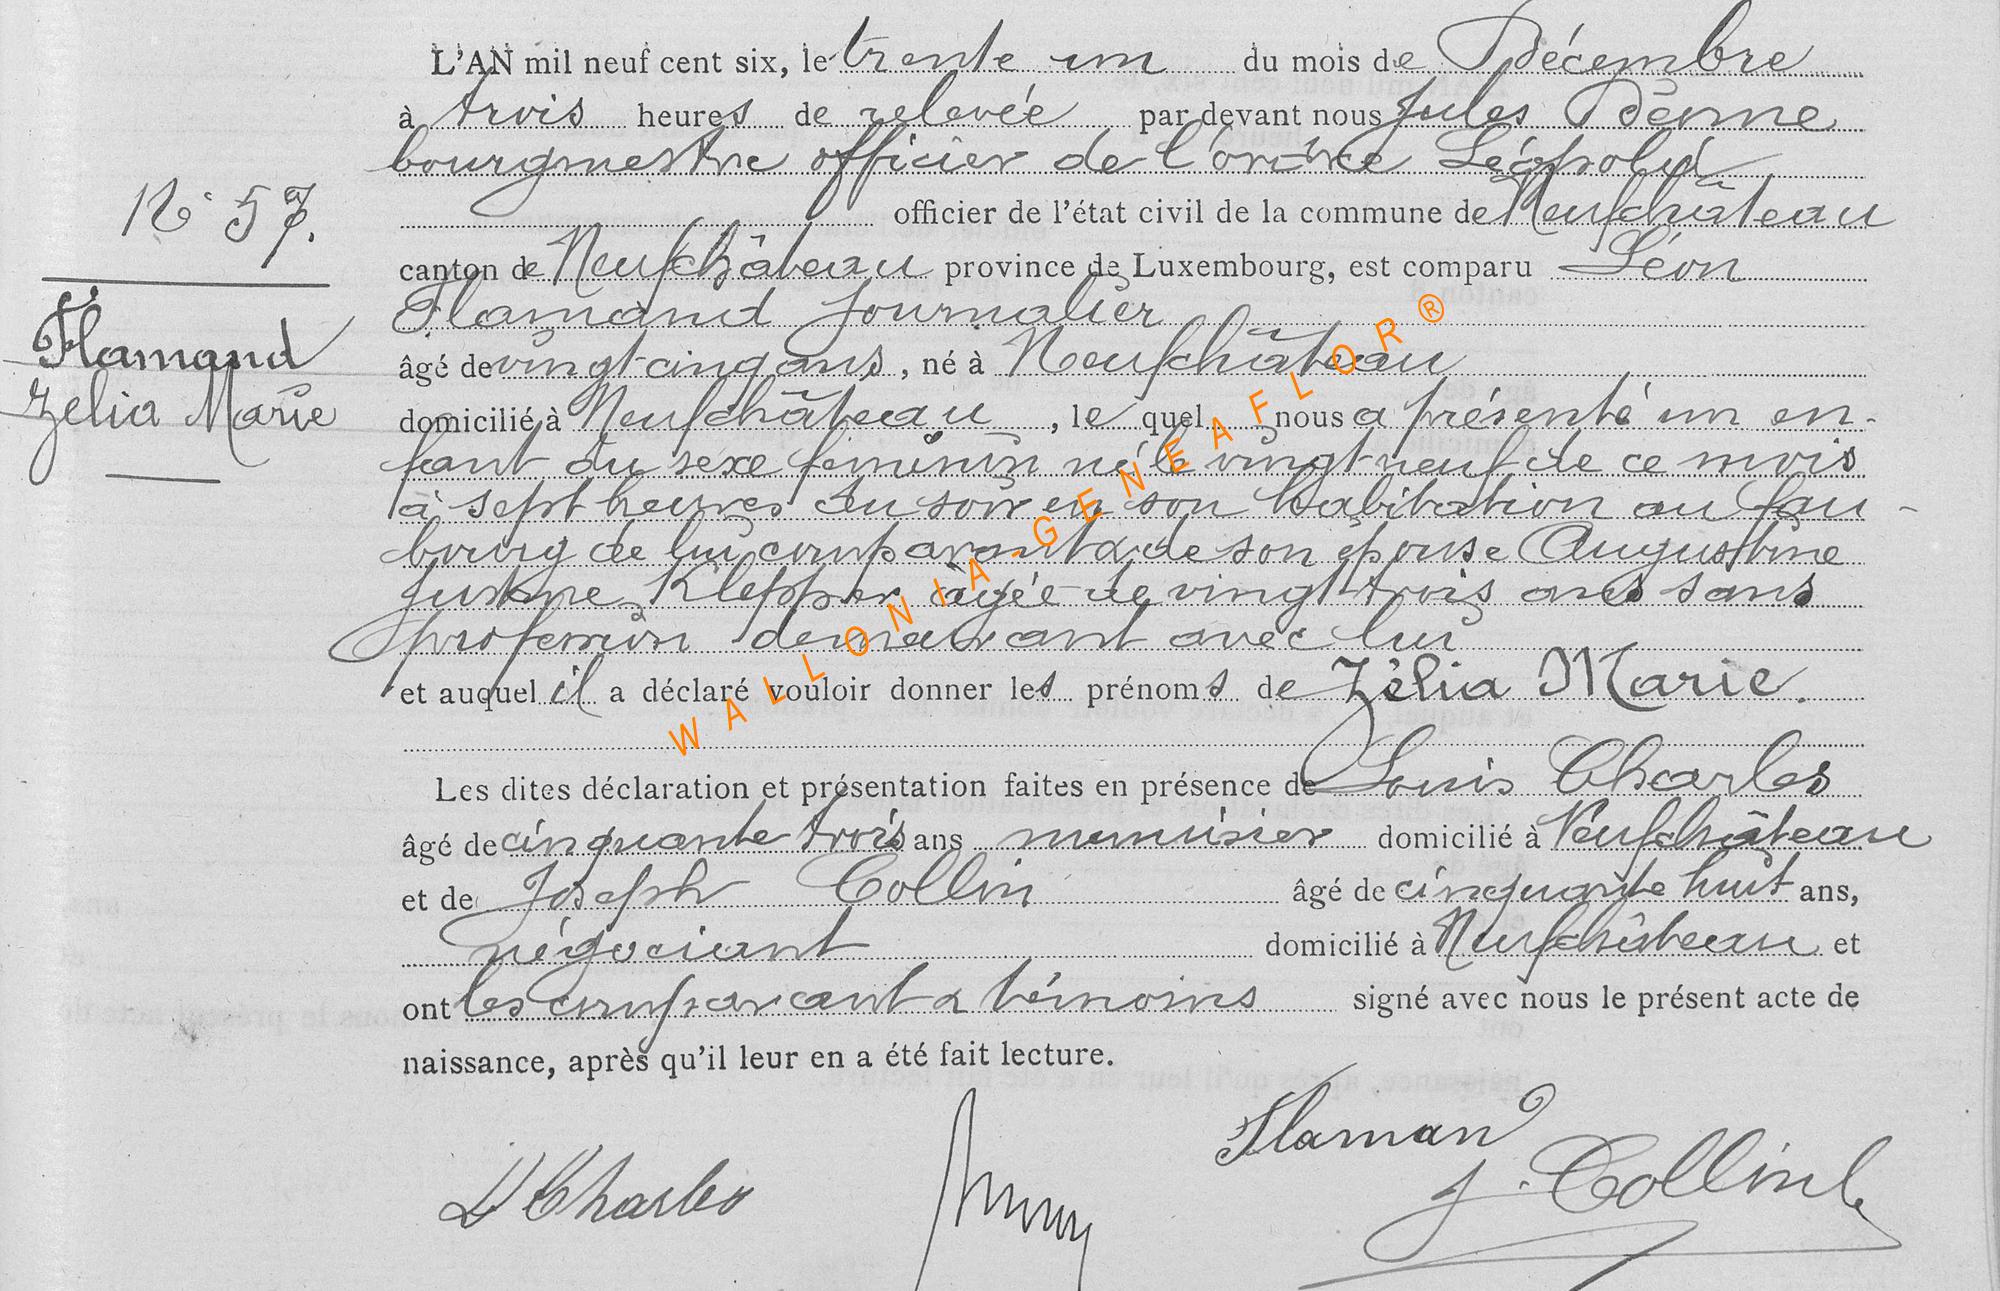 L'AN mil neuf cent six, le trente un du mois de Décembre
à trois heures de relevée par devant nous Jules
bourgmestre officier de l'ordre Léopold
officier de l'état civil de la commune de Neufchâteau
canton de Neufchâteau province de Luxembourg, est comparu Léon
Flamand journalier
âgé de vingt cinq ans, né à Neufchâteau
domicilié à Neufchâteau, le quel nous a présenté un en-
fant du sexe féminin né le vingt neuf de ce mois
à sept heures du soir en son habitation au fau-
bourg de lui comparant & de son épouse Augustine
Justine Klepper âgée de vingt trois ans sans
profession demeurant avec lui
et auquel il a déclaré vouloir donner les prénoms de Zélia Marie.
Les dites déclaration et présentation faites en présence de Louis Charles
âgé de cinquante trois ans menuisier domicilié à Neufchâteau
et de Joseph Collin âgé de cinquante huit ans,
négociant domicilié à Neufchâteau et
ont les comparant & témoins signé avec nous le présent acte de
naissance, après qu'il leur en a été fait lecture.
N° 57.
Flamand
Zélia Marie
Flamand
L Charles
J. Collin
WALLONIA-GENEAFLOR®